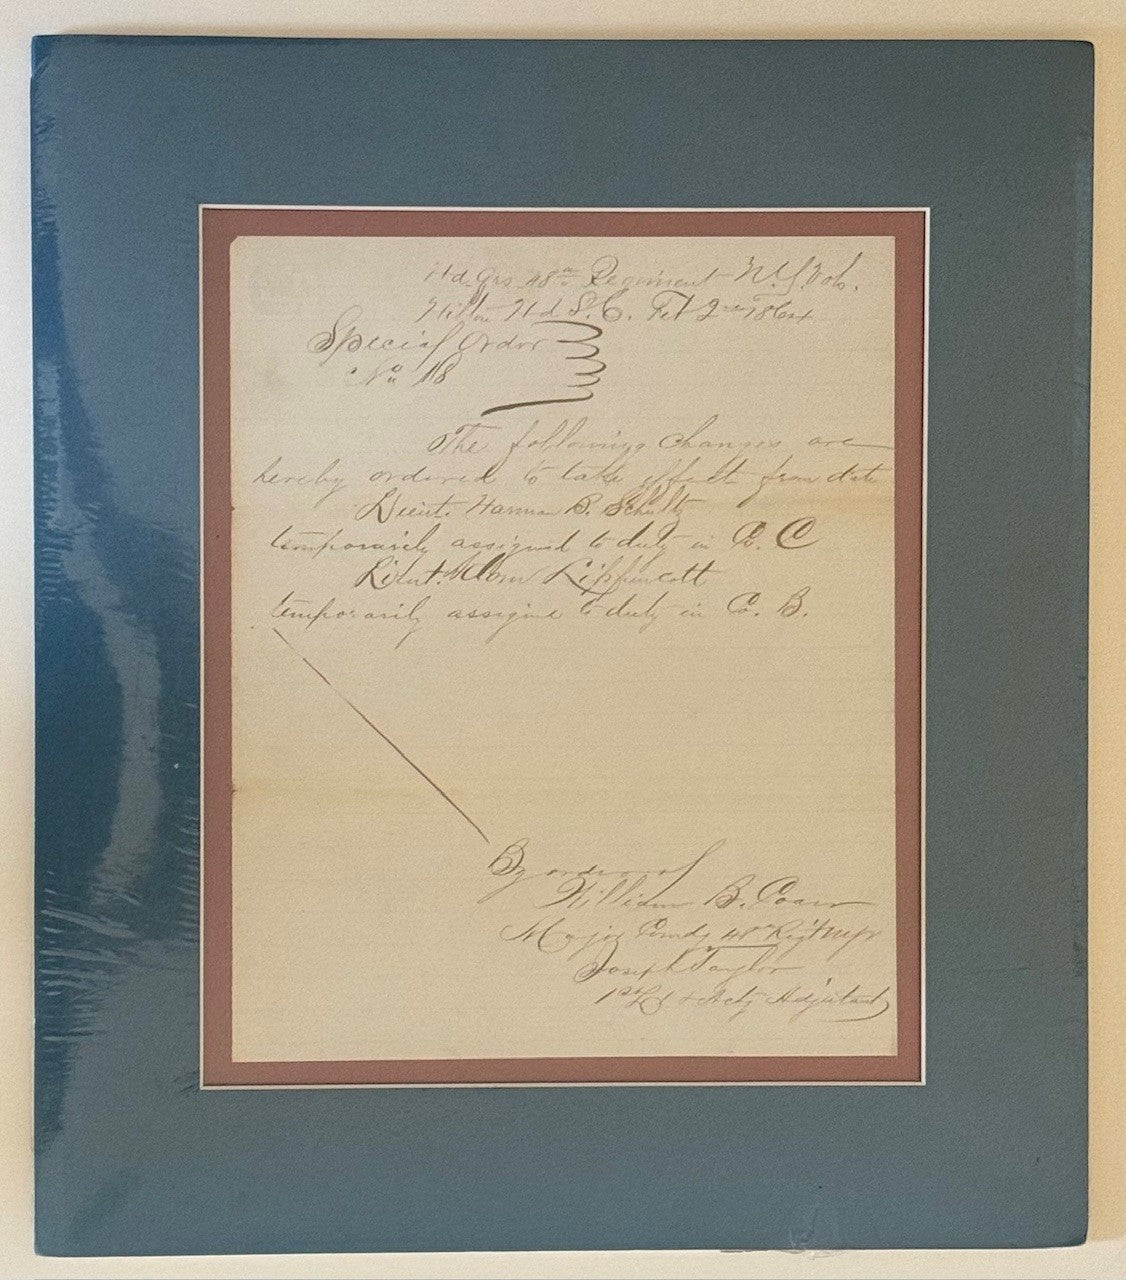 Hd. Qrs. 48th Regiment N.Y. Vols.
Hilton Hd S.C. Feb 2nd 1864
Special Order
No. 18
The following changes are
hereby ordered to take effect from date
Lieut. Harman B. Schultz
temporarily assigned to duty in Co. C
Lieut. Lippincott
temporarily assigned to duty in Co. B.
By order of
William B. Coan
Major Comdg 48th Regt NYV
Joseph Taylor
1st Lt & Actg Adjutant